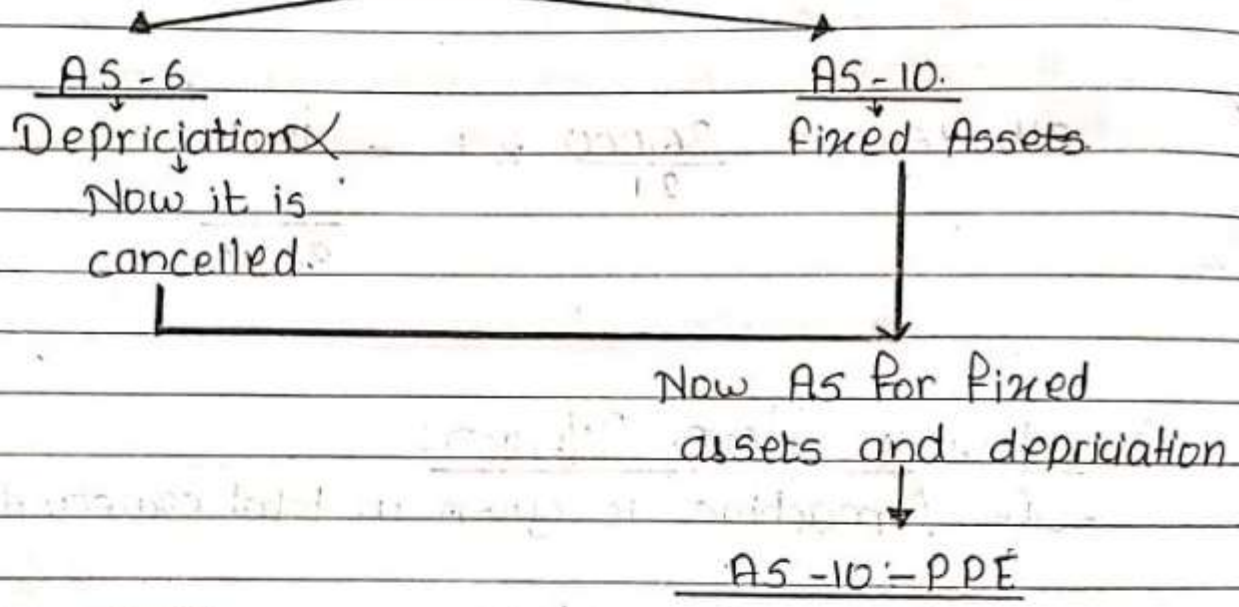 AS-6
Depriciation
Now it is
cancelled.
AS-10.
Fixed Assets
Now As for fixed
assets and depriciation
AS-10:-PPE